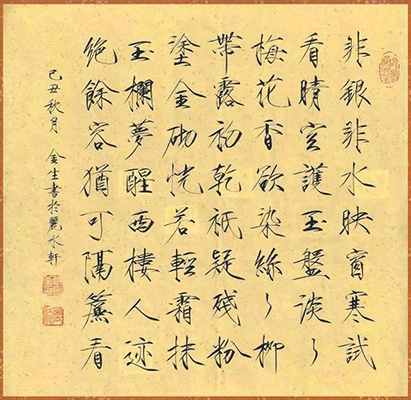 非銀非水映窗寒試
看晴空護玉盤淡々
梅花香欲染絲々柳
帶露初乾祇疑殘粉
塗金砌恍若輕霜抹
玉欄夢醒西樓人迹
絕餘容猶可隔簾看
己丑秋月 金生書於麗水軒